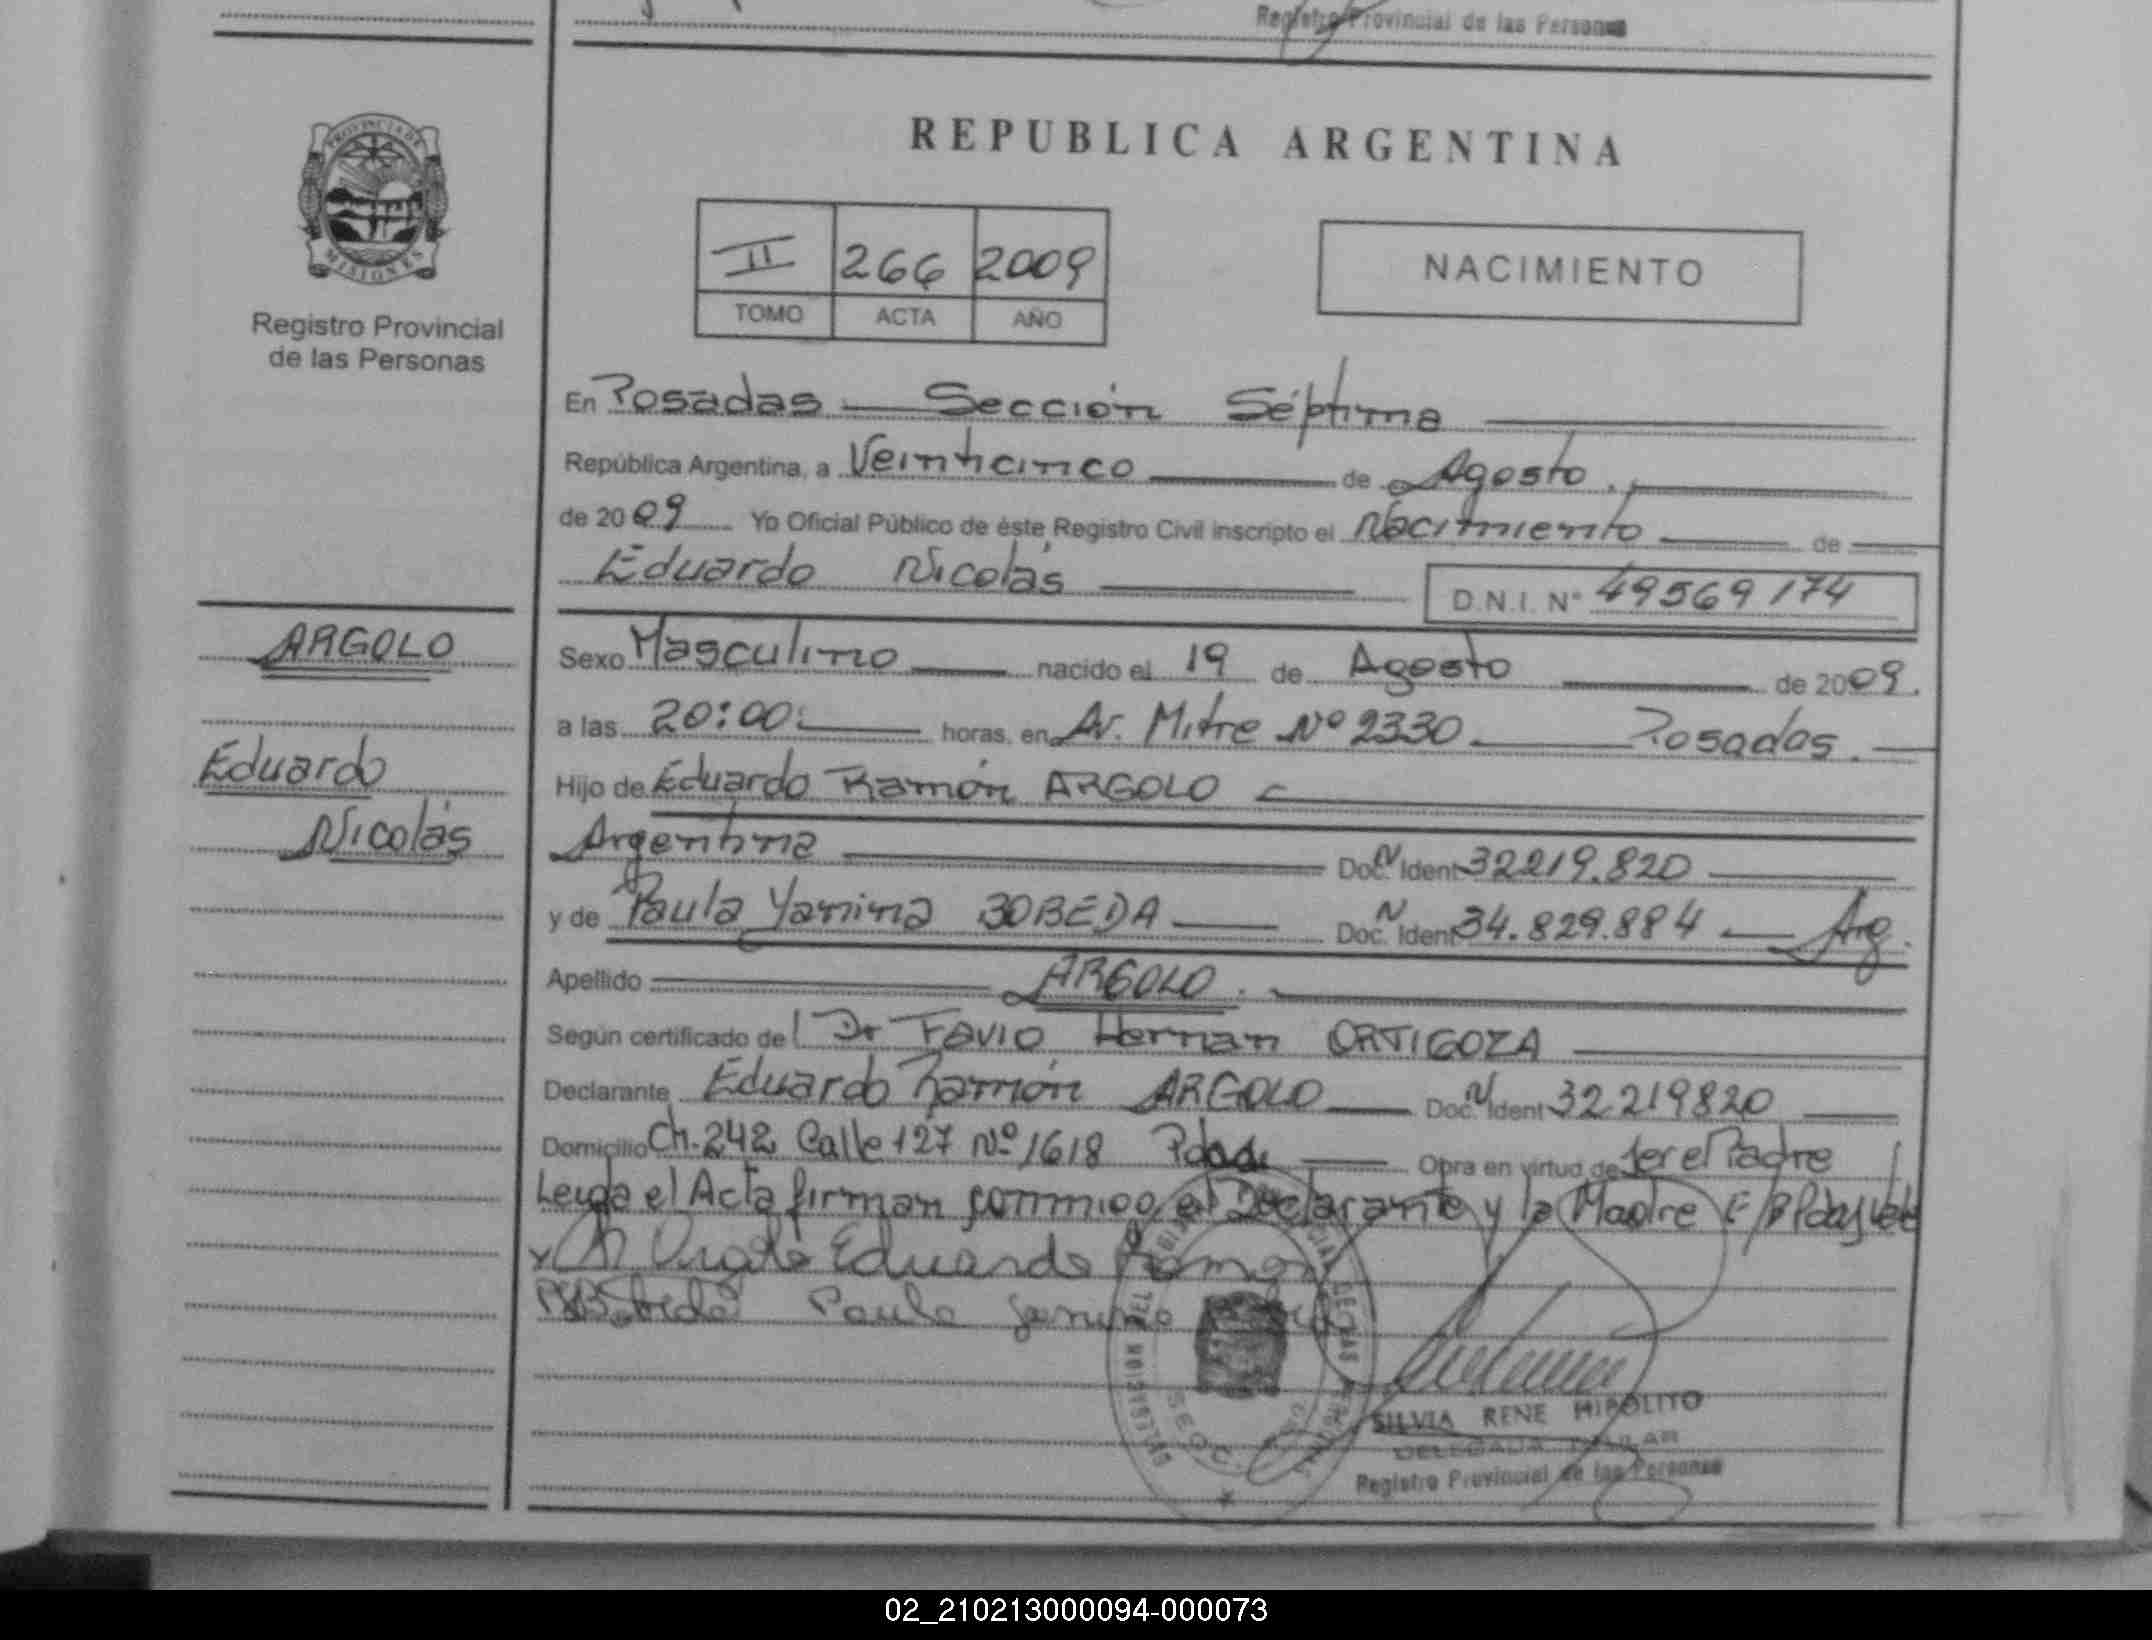 Registro Provincial de las Personas
PROVINCIA DE
MISIONES
Registro Provincial
de las Personas
REPUBLICA ARGENTINA
II 266 2009
TOMO ACTA AÑO
NACIMIENTO
En Posadas — Sección Séptima
República Argentina, a Veinticinco de Agosto.
de 2009 Yo Oficial Público de éste Registro Civil inscripto el Nacimiento de
Eduardo Nicolás D.N.I. N° 49569174
ARGOLO
Sexo Masculino nacido el 19 de Agosto de 2009.
a las 20:00: horas, en Av. Mitre Nº 2330 Posadas.
Eduardo
Hijo de Eduardo Ramón ARGOLO
Nicolás
Argentina Doc. N Ident 32219.820
y de Paula Yanina BOBEDA Doc. N Ident 34.829.884 — Arg.
Apellido ARGOLO.
Según certificado del Dr Favio Hernan ORTIGOZA
Declarante Eduardo Ramón ARGOLO Doc. N Ident 32219820
Domicilio Ch. 242 Calle 127 Nº 1618 Pdas Obra en virtud de ser el Padre
Leida el Acta firman conmigo el Declarante y la Madre
Eduardo Ramon
Paula
SILVIA RENE HIPOLITO
DELEGADA TITULAR
Registro Provincial de las Personas
02_210213000094-000073